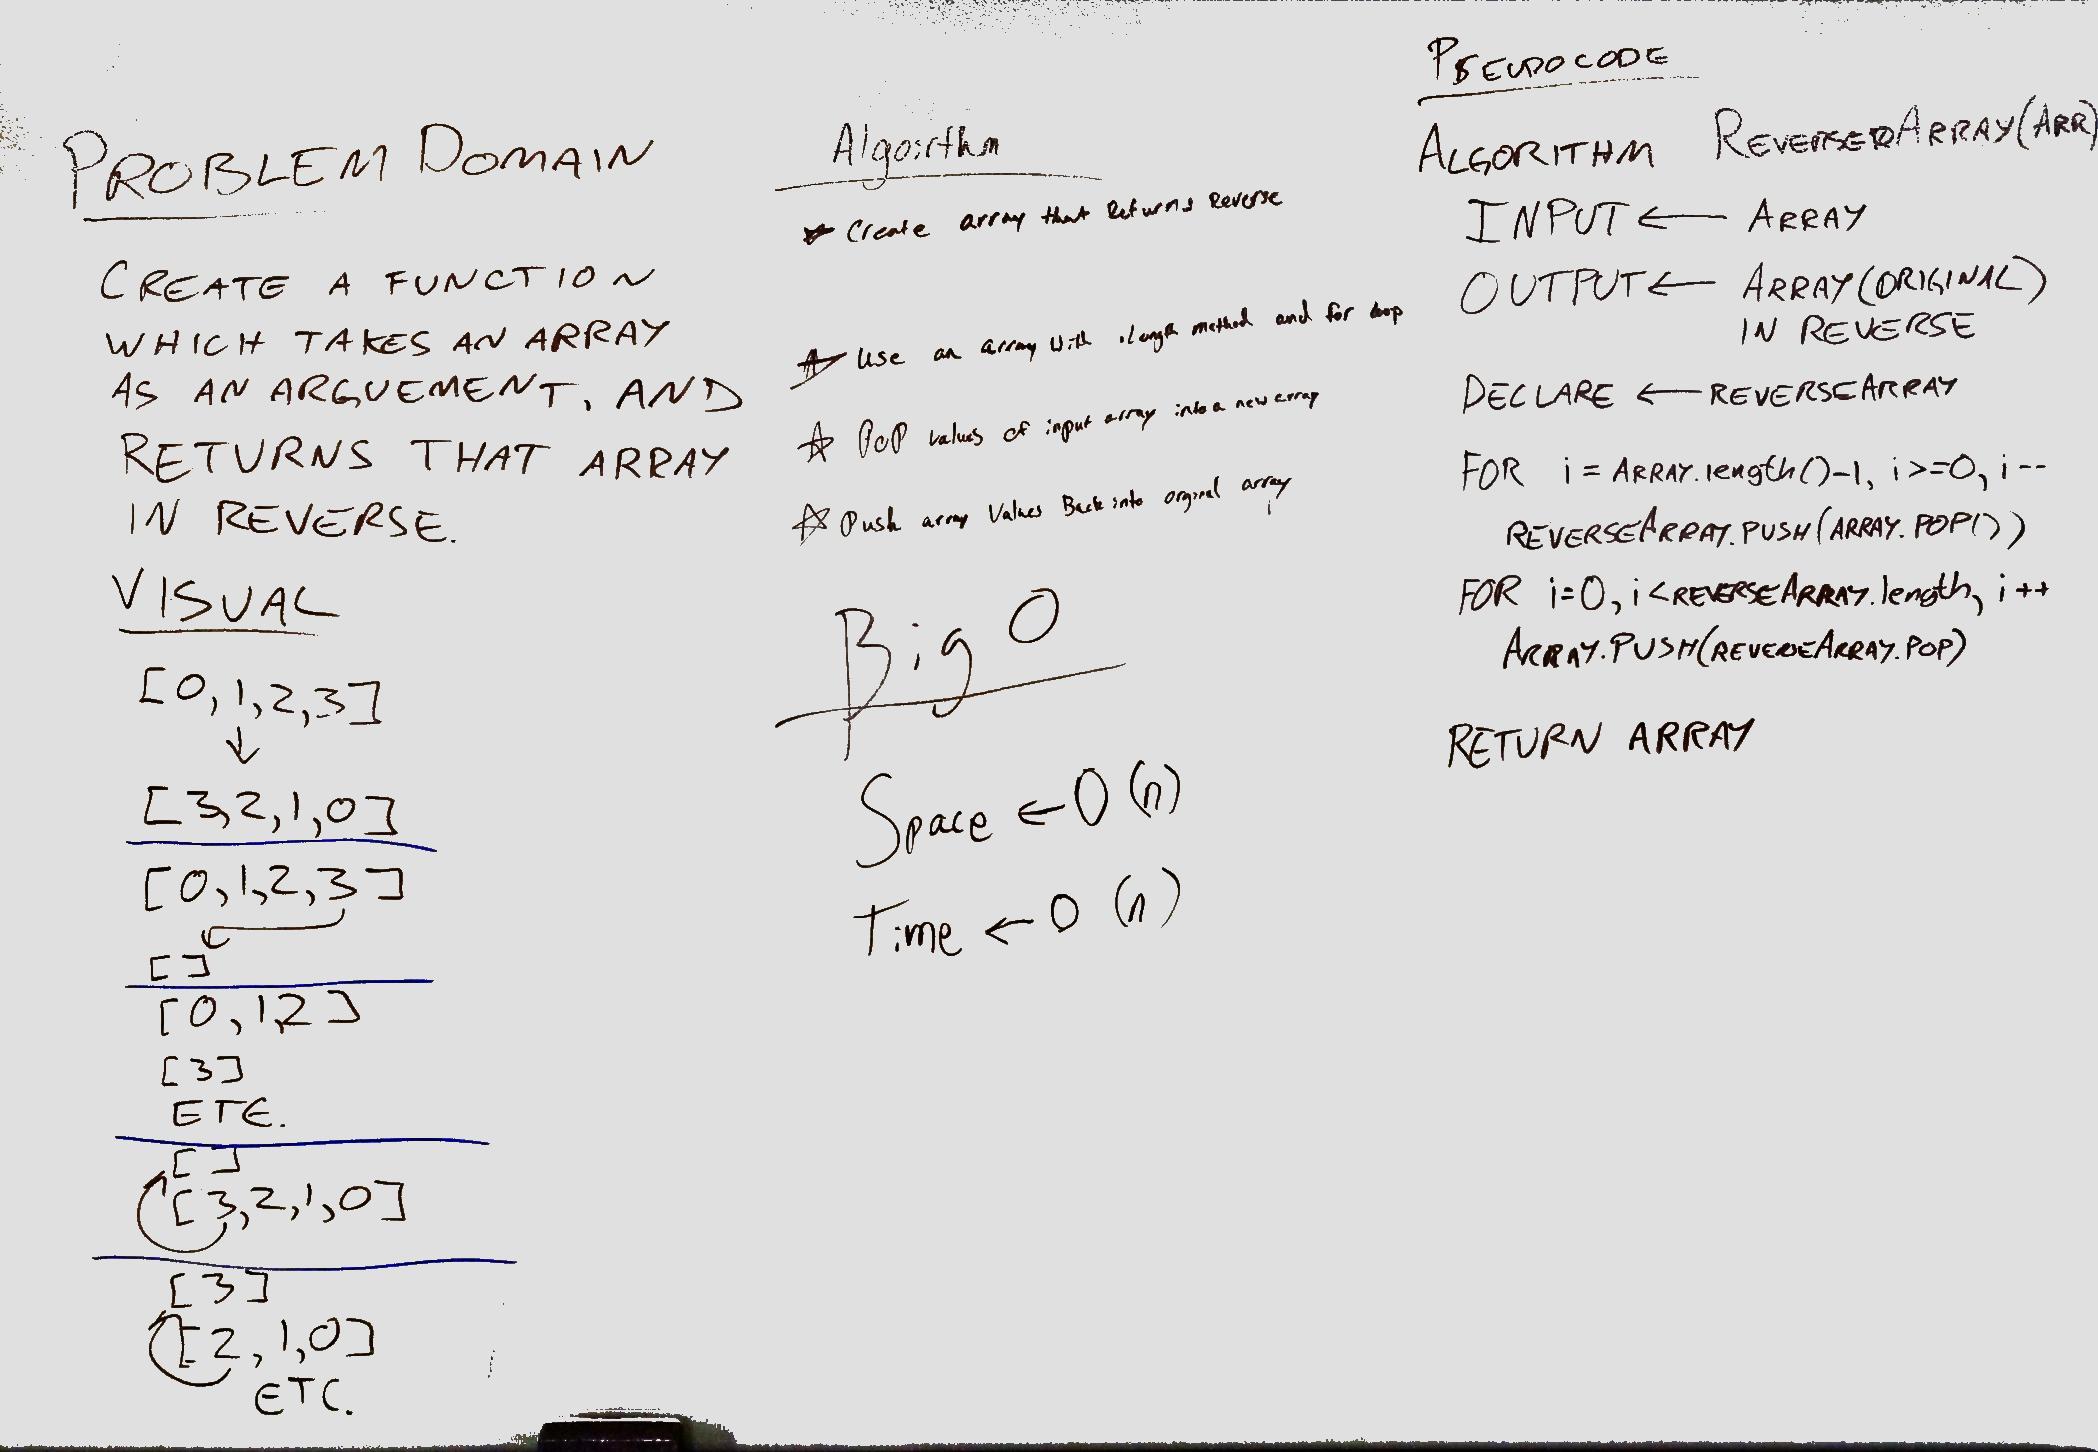 PROBLEM DOMAIN
CREATE A FUNCTION
WHICH TAKES AN ARRAY
AS AN ARGUEMENT, AND
RETURNS THAT ARRAY
IN REVERSE.
VISUAL
[0,1,2,3]
↓
[3,2,1,0]
[0,1,2,3]
[]
[0,1,2]
[3]
ETC.
[]
[3,2,1,0]
[3]
[2,1,0]
ETC.
Algorithm
Create array that Returns Reverse
Use an array with .length method and for loop
POP values of input array into a new array
Push array Values Back into orginal array
Big O
Space ← O (n)
Time ← O (n)
PSEUDOCODE
ALGORITHM REVERSEDARRAY(ARR)
INPUT ← ARRAY
OUTPUT ← ARRAY(ORIGINAL)
IN REVERSE
DECLARE ← REVERSEARRAY
FOR i = ARRAY.length()-1, i >=0, i--
REVERSEARRAY.PUSH(ARRAY.POP())
FOR i=0, i < REVERSEARRAY.length, i++
ARRAY.PUSH(REVERSEARRAY.POP)
RETURN ARRAY